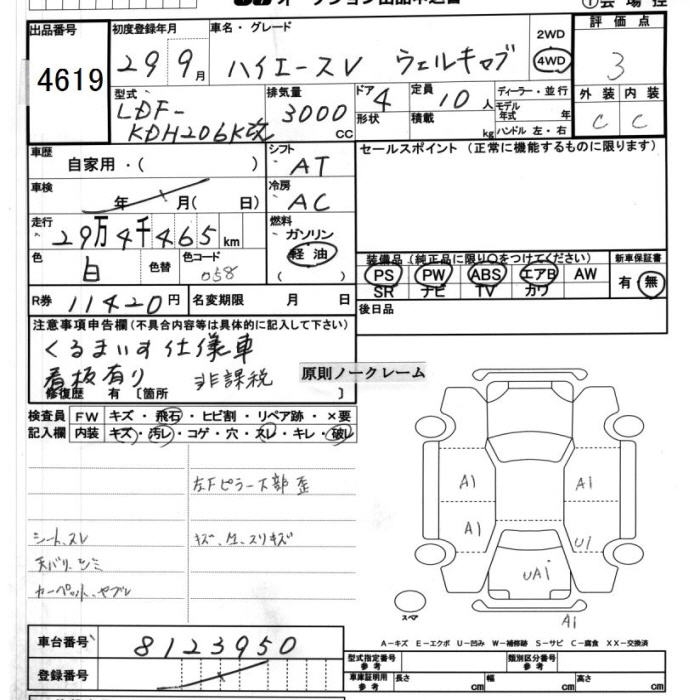 出品番号 初度登録年月 車名・グレード 評価点
4619 29 9月 ハイエースV ウェルキャブ 2WD 4WD 3
型式 排気量 ドア 定員 ディーラー・並行 外装 内装
LDF- 3000 cc 4 10 人 モデル年式 年 C C
KDH206K改 形状 積載 kg ハンドル 左・右
車歴 シフト セールスポイント (正常に機能するものに限ります)
自家用・( ) AT
車検 冷房
年 月( 日) AC
走行 燃料
29万4千465km ガソリン
色 色替 色コード 軽油 装備品 (純正品に限り○をつけてください) 新車保証書
白 058 ( ) PS PW ABS エアB AW 有・無
SR ナビ TV カワ
R券 11420円 名変期限 月 日 後日品
注意事項申告欄 (不具合内容等は具体的に記入して下さい)
くるまいす仕様車
看板有り 非課税 原則ノークレーム
修復歴 有 〔箇所 〕
検査員 FW キズ・飛石・ヒビ割・リペア跡・×要
記入欄 内装 キズ・汚レ・コゲ・穴・スレ・キレ・破レ
左Fピラー下部歪
シートスレ
天バリシミ
カーペットヤブレ
A1 A1
A1 U1
UA1
スペア A1
A-キズ E-エクボ U-凹み W-補修跡 S-サビ C-腐食 XX-交換済
車台番号 8123950 型式指定番号 参考 類別区分番号 参考
登録番号 車庫証明用 参考 長さ cm 幅 cm 高さ cm